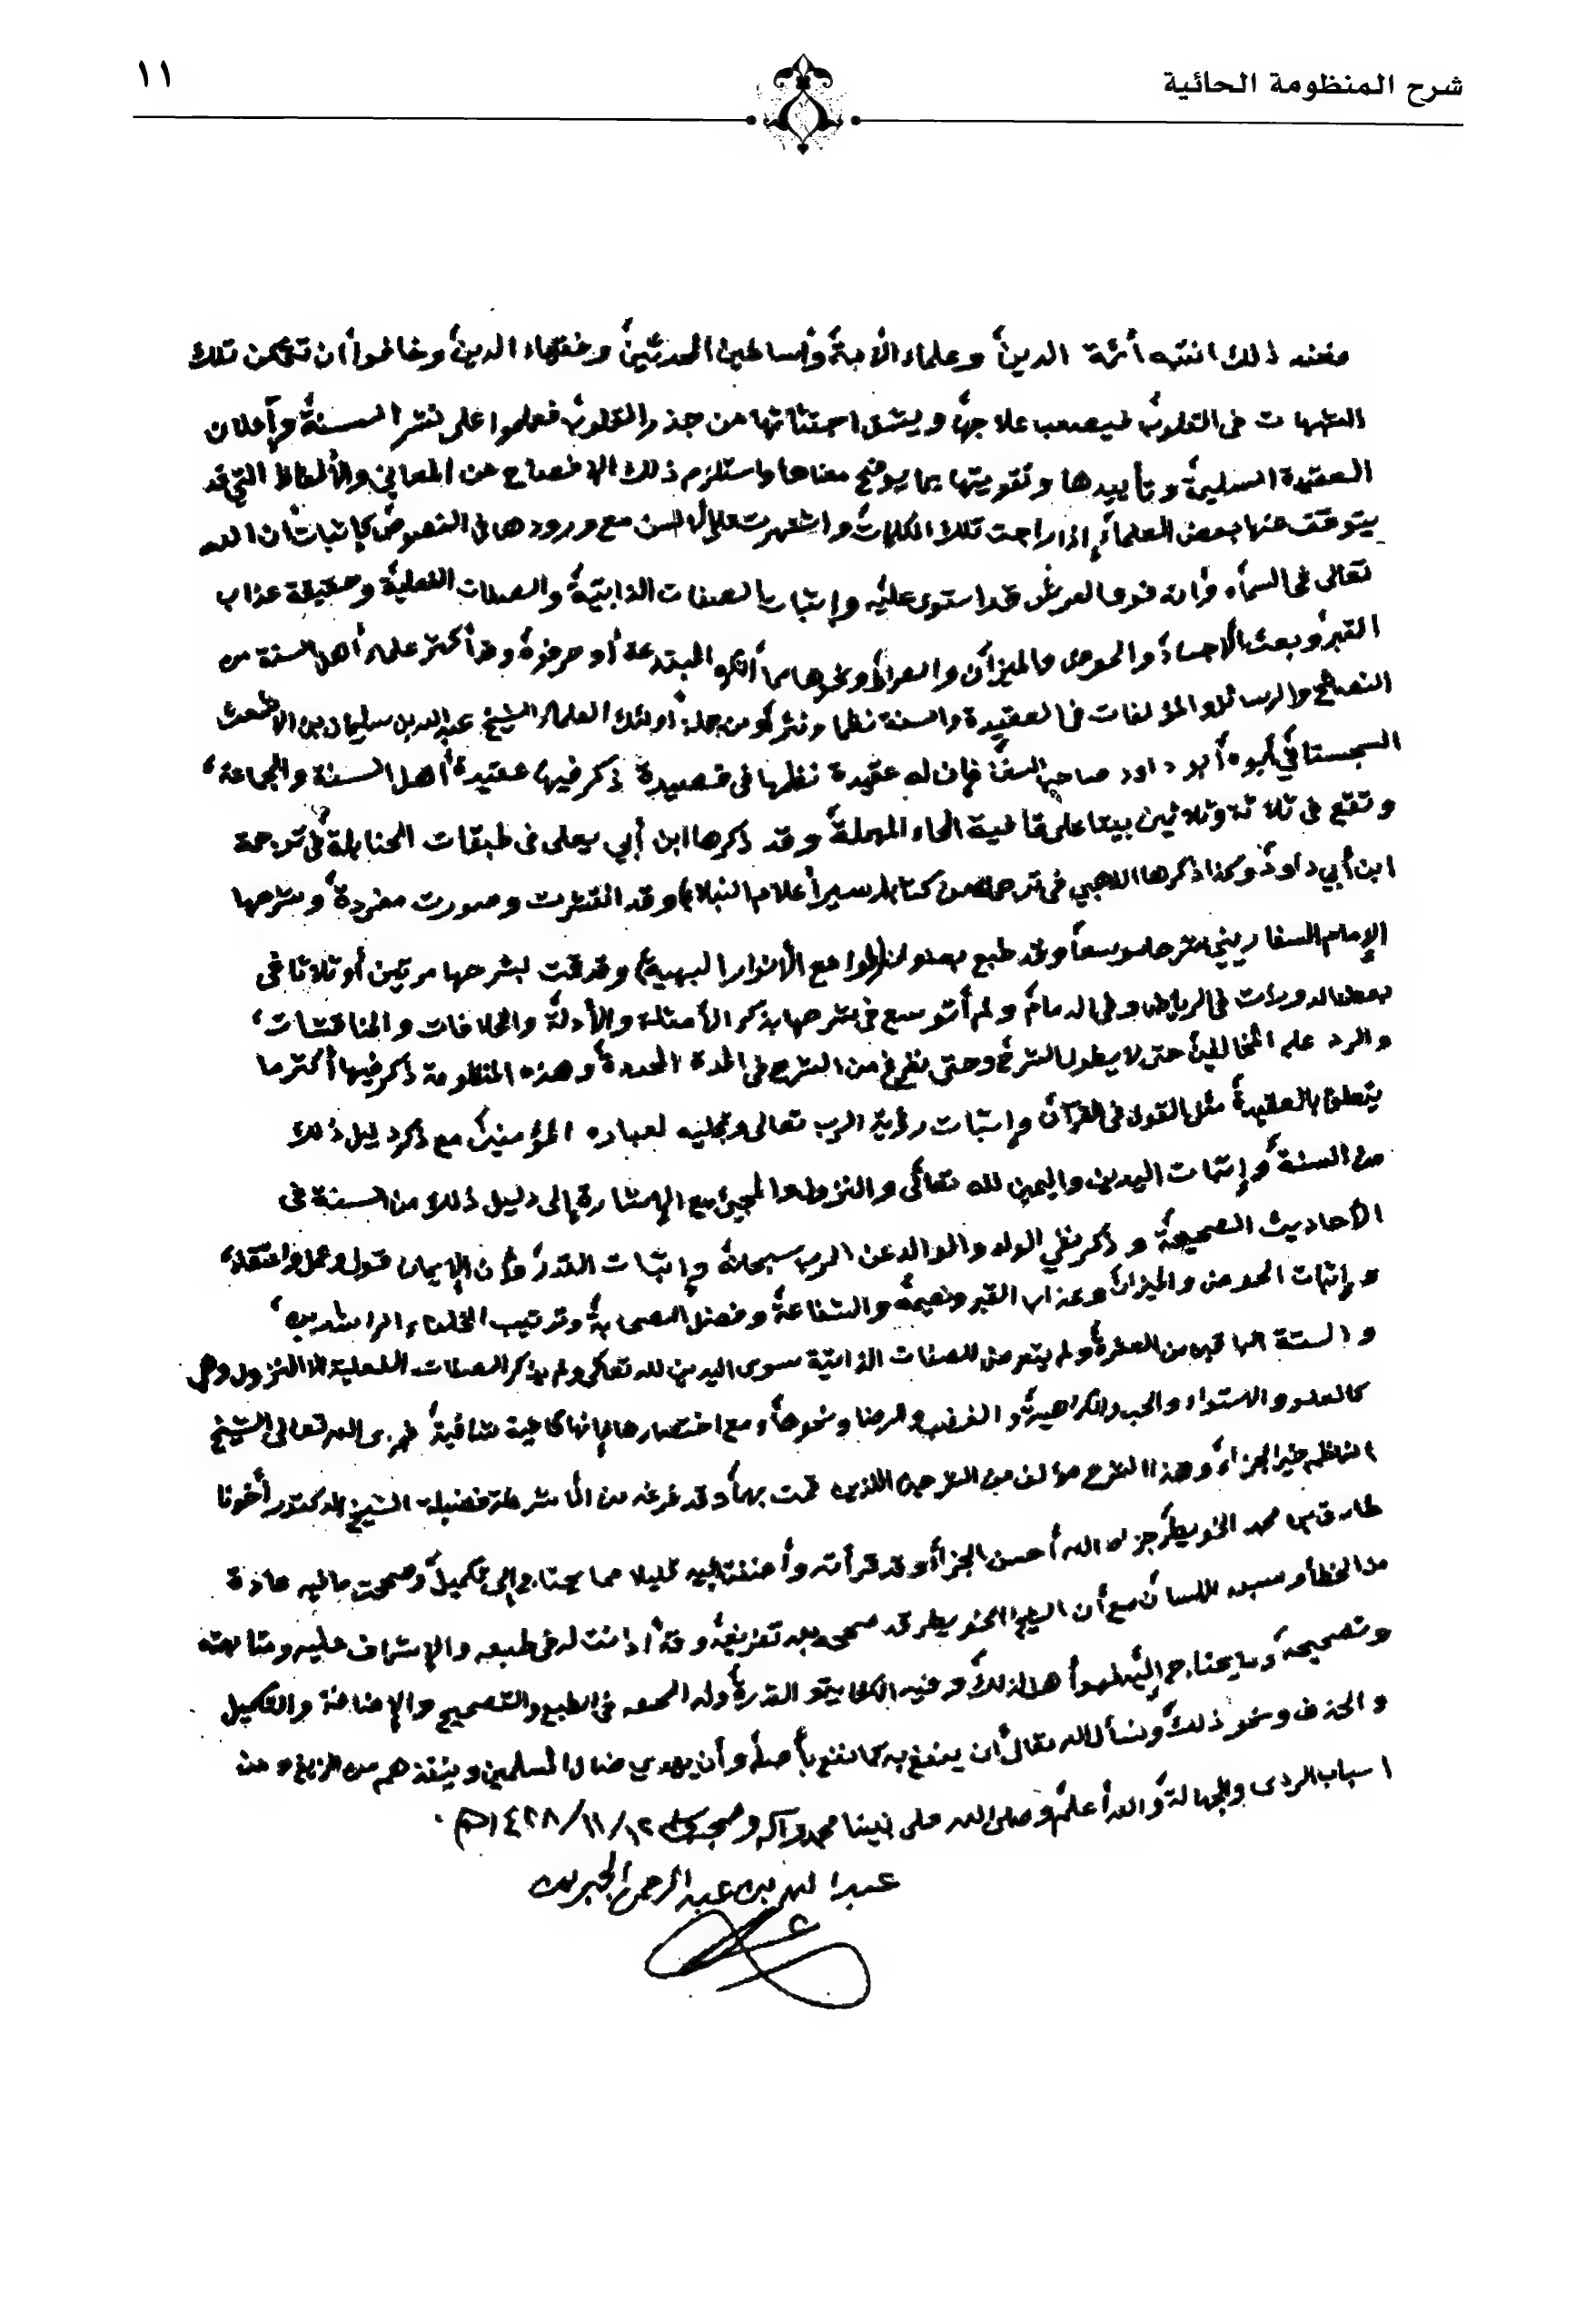 شرح المنظومة الحائية
١١
فعند ذلك انتبه أئمة الدين، وعلماء الأمة، وأساطين المحدثين، وفقهاء الدين، وخافوا أن تتمكن تلك
الشبهات في القلوب، فيصعب علاجها، ويشق اجتثاثها من جذر القلوب، فعملوا على نشر السنة، وإعلان
العقيدة السليمة، وتأييدها وتقويتها بما يوضح معناها واستلزم ذلك الإفصاح عن المعاني والألفاظ التي قد
يتوقف عنها بعض العلماء، إذا راجت تلك الكلمات، واشتهرت على الألسن مع ورودها في النصوص، كإثبات أن الله
تعالى في السماء، وأنه فوق العرش، قد استوى عليه، وإثبات الصفات الذاتية، والصفات الفعلية، وحقيقة عذاب
القبر، وبعث الأجساد، والحوض والميزان، والصراط، ونحوها مما أنكره المبتدعة، أو حرفوه، وقد أكثر علماء أهل السنة من
النصائح والرسائل والمؤلفات في العقيدة والسنة نظما ونثرا، ومن جملة أولئك العلماء الشيخ عبد الله بن سليمان بن الأشعث
السجستاني، أبوه أبو داود صاحب السنن، فإن له عقيدة نظمها في قصيدة ذكر فيها عقيدة أهل السنة والجماعة،
وتقع في ثلاثة وثلاثين بيتا على قافية الحاء المهملة، وقد ذكرها ابن أبي يعلى في طبقات الحنابلة، في ترجمة
ابن أبي داود، وكذا ذكرها الذهبي في ترجمته من كتابه (سير أعلام النبلاء) وقد انتشرت وصورت مفردة، وشرحها
الإمام السفاريني شرحا موسعا، وقد طبع بعنوان (لوامع الأنوار البهية) وقد قمت بشرحها مرتين أو ثلاثا في
بعض الدورات في الرياض وفي الدمام، ولم أتوسع في شرحها بذكر الأمثلة والأدلة، والخلافات والمناقشات،
والرد على المخالفين، حتى لا يطول الشرح، وحتى نفرغ من الشرح في المدة المحددة، وهذه المنظومة ذكر فيها أكثر ما
يتعلق بالعقيدة، مثل القول في القرآن، وإثبات رؤية الرب تعالى وتجليه لعباده المؤمنين، مع ذكر دليل ذلك
من السنة، وإثبات اليدين واليمين لله تعالى، والنزول والمجيء مع الإشارة إلى دليل ذلك من السنة في
الأحاديث الصحيحة، وذكر نفي الولد والوالد عن الرب سبحانه، وإثبات القدر، وأن الإيمان قول وعمل واعتقاد،
وإثبات الحوض والميزان، وعذاب القبر ونعيمه، والشفاعة، وفضل الصحابة، وترتيب الخلفاء الراشدين،
والستة الباقين من العشرة، ولم يتعرض للصفات الذاتية سوى اليدين لله تعالى، ولم يذكر الصفات الفعلية إلا النزول وهي
كالعلو والاستواء والحب والكراهية، والغضب والرضا ونحوها، ومع اختصارها فإنها كافية شافية، فجزى الله تعالى الشيخ
الناظم خير الجزاء، وهذا الشرح مؤلف من الشرحين اللذين قمت بهما، وقد فرغه من الأشرطة فضيلة الشيخ الدكتور أخونا
طارق بن محمد الخويطر، جزاه الله أحسن الجزاء، وقد قرأته، وأضفت إليه قليلا مما يحتاج إلى تكميل، وصححت ما فيه عادة
من الخطأ وسبق اللسان، مع أن الشيخ الخويطر قد صححه بعد تفريغه، وقد أذنت له في طبعه والإشراف عليه ومتابعته
وتصحيحه، وما يحتاج إليه، فهو أهل لذلك، وفيه الكفاية والقدرة، وله الحق في الطبع والتصحيح والإضافة والتكميل
والحذف ونحو ذلك، ونسأل الله تعالى أن ينفع به كما نفع بأصله، وأن يهدي ضال المسلمين وينقذهم من الزيغ ومن
أسباب الردى والجهالة، والله أعلم، وصلى الله على نبينا محمد وآله وصحبه وسلم ١٢/١١/١٤٢٨هـ.
عبد الله بن عبد الرحمن الجبرين